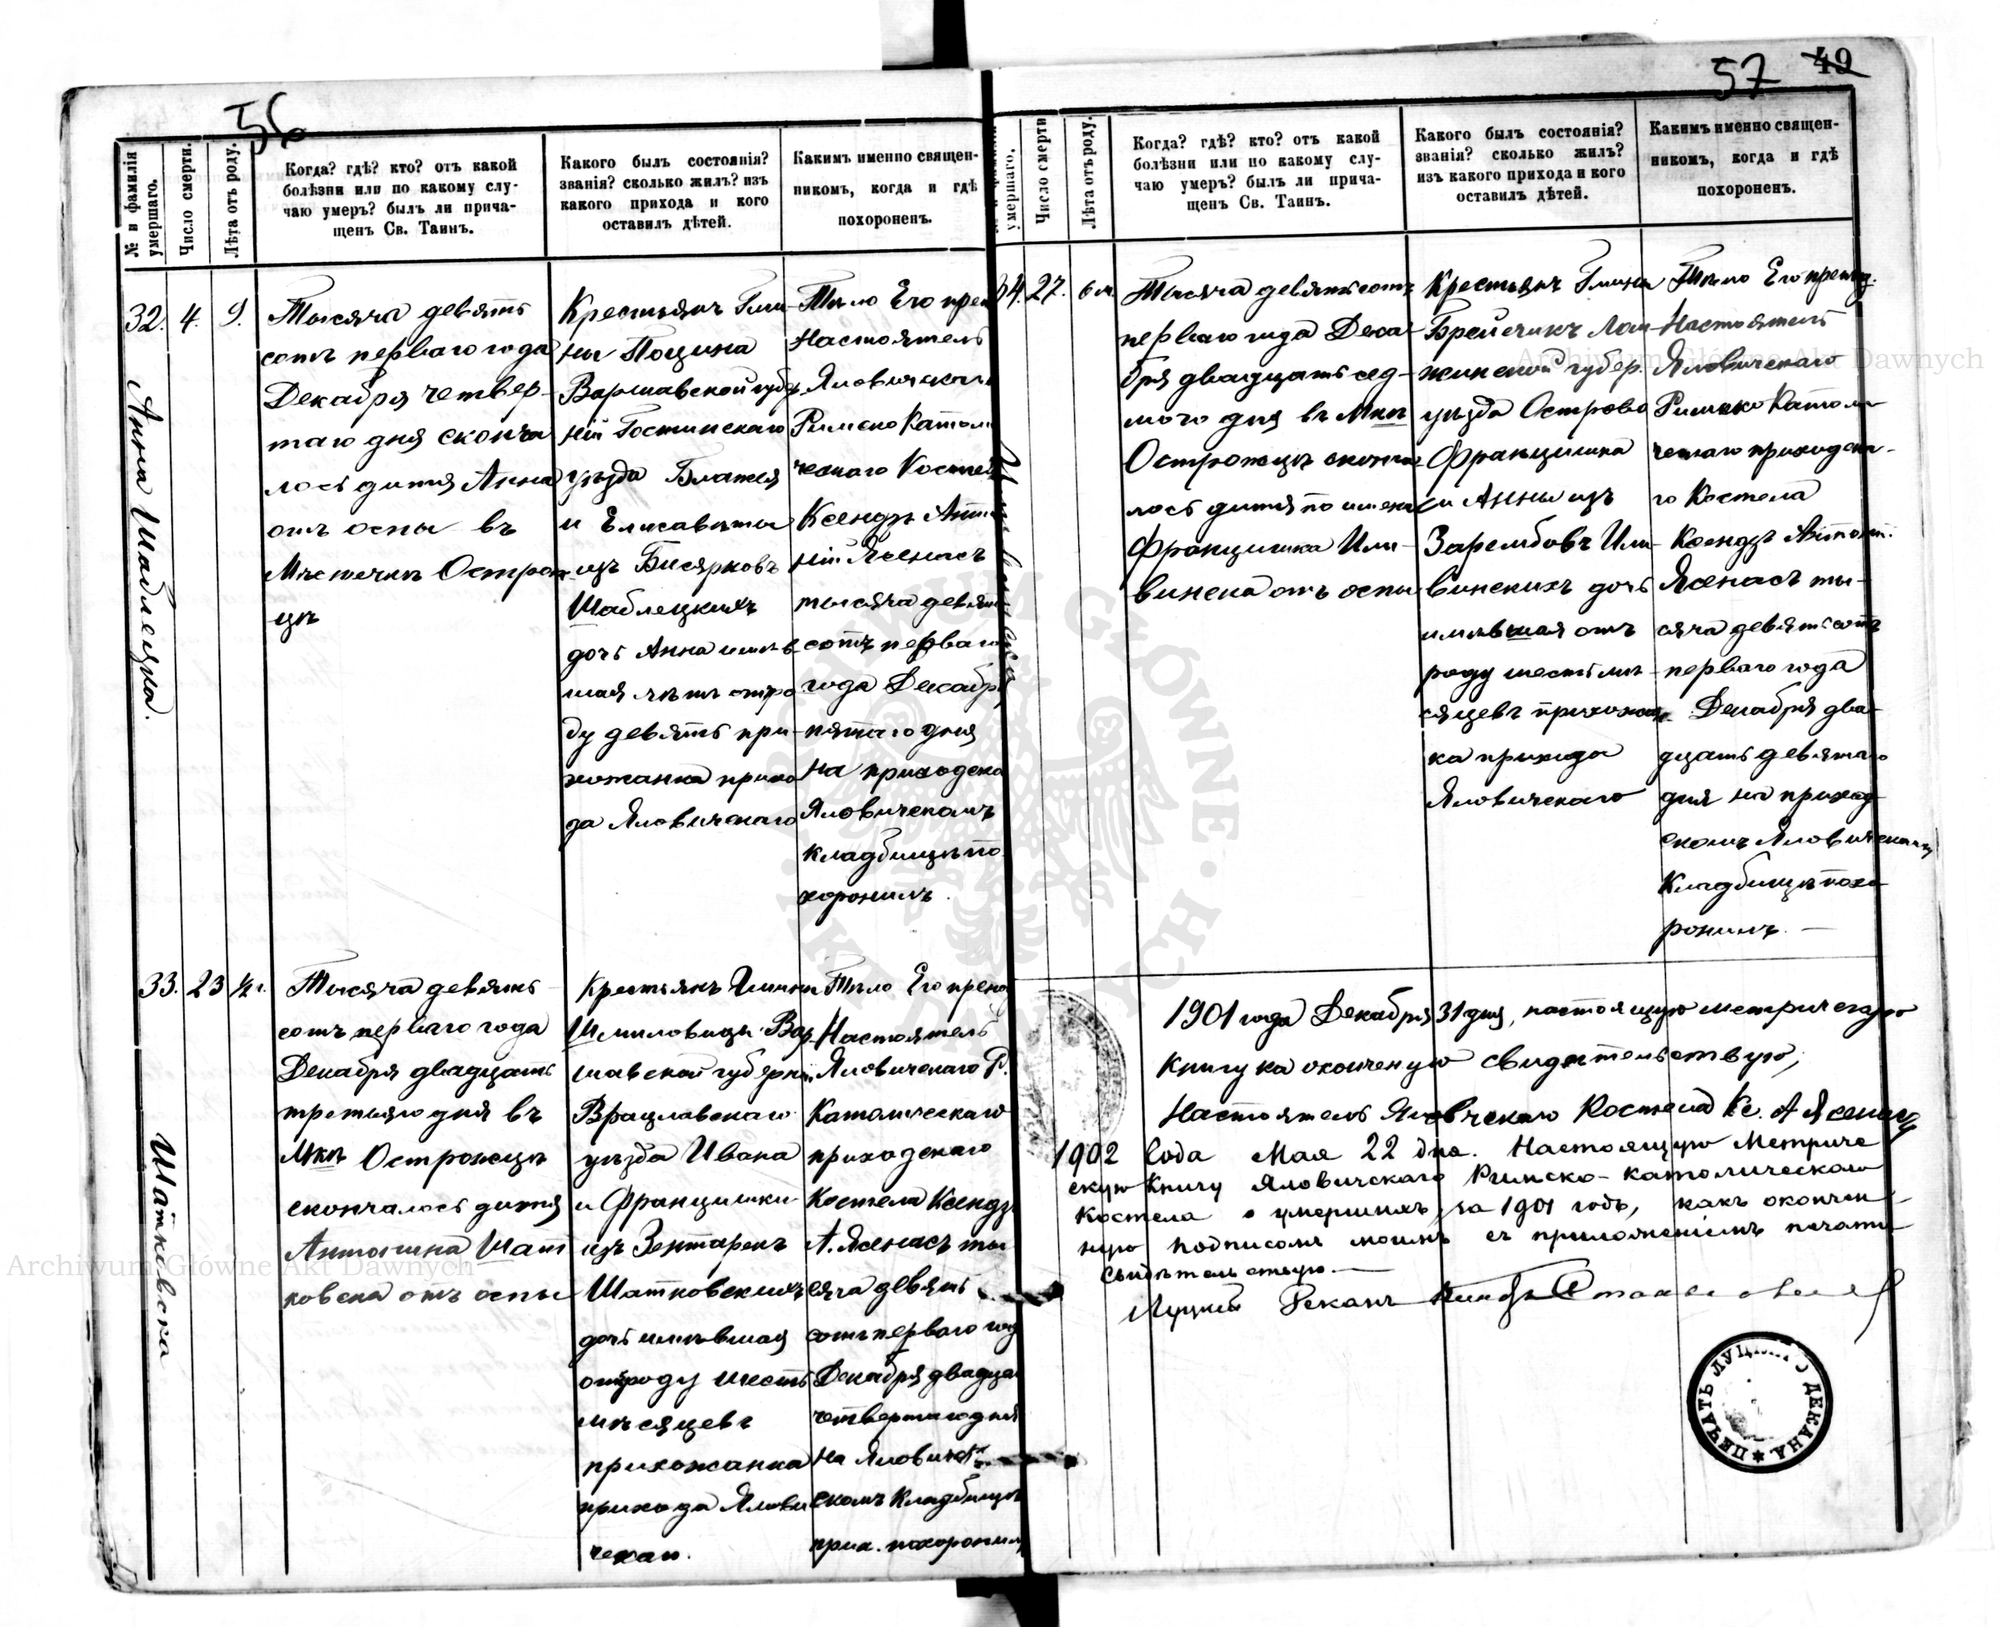 56
№ и фамилія умершаго.
Число смерти.
Лѣта отъ роду.
Когда? гдѣ? кто? отъ какой
болѣзни или по какому слу-
чаю умеръ? былъ ли прича-
щенъ Св. Таинъ.
Какого былъ состоянія?
званія? сколько жилъ? изъ
какого прихода и кого
оставилъ дѣтей.
Какимъ именно священ-
никомъ, когда и гдѣ
похороненъ.
32.
4.
9.
Анна Шаблецка.
Тысяча девять
сотъ перваго года
Декабря четвер-
таго дня сконча
лось дитя Анна
отъ оспы въ
Мѣстечкѣ Острож
цѣ
Крестьянъ Гми
ны Поцина
Варшавской губер
ніи Гостинскаго
уѣзда Блажея
и Елисаветы
изъ Бисярковъ
Шаблецкихъ
дочь Анна имѣв
шая лѣтъ отъ ро
ду девять при-
хожанка прихо
да Яловичскаго
Тѣло Его преп
Настоятель
Яловичскаго
Римско Катол
ческаго Костел
Ксендзъ Анто
ній Ясенасъ
тысяча девять
сотъ перваго
года Декабр
пятаго дня
на приходско
Яловичскомъ
кладбищѣ по
хоронилъ.
33.
23
½ г.
Шатковска
Тысяча девять
сотъ перваго года
Декабря двадцать
третьяго дня въ
Мкѣ Острожецъ
скончалось дитя
Антонина Шат
ковска отъ оспы
Крестьянъ Гмины
Шмиловицы Вар
шавской губерніи
Врацлавскаго
уѣзда Ивана
и Францишки
изъ Зентарекъ
Шатковскихъ
дочь имѣвшая
отъ роду шесть
мѣсяцевъ
прихожанка
прихода Ялови
чскаго.
Тѣло Его преп
Настоятель
Яловичскаго Р.
Католическаго
приходскаго
Костела Ксендз
А. Ясенасъ ты
сяча девять
сотъ перваго год
Декабря двадца
четвертаго дня
на Ялович
скомъ кладбищѣ
прих. похоронилъ
57
49
умершаго.
Число смерти
Лѣта отъ роду.
Когда? гдѣ? кто? отъ какой
болѣзни или по какому слу-
чаю умеръ? былъ ли прича-
щенъ Св. Таинъ.
Какого былъ состоянія?
званія? сколько жилъ?
изъ какого прихода и кого
оставилъ дѣтей.
Какимъ именно священ-
никомъ, когда и гдѣ
похороненъ.
34.
27.
6 м.
Тысяча девятьсотъ
перваго года Дека
бря двадцать сед-
мого дня въ Мкѣ
Острожцѣ сконча
лось дитя по имени
Францишка Или-
винска отъ оспы
Крестьянъ Гмины
Брейчикъ Лом-
жинской губер.
уѣзда Острово
Францишка
и Анны изъ
Зарембовъ Или-
винскихъ дочь
имѣвшая отъ
роду шесть мѣ-
сяцевъ прихожан
ка прихода
Яловичскаго
Тѣло Его препод.
Настоятель
Яловичскаго
Римско Католи
ческаго приходска-
го Костела
Ксендзъ Антоній
Ясенасъ ты-
сяча девятьсотъ
перваго года
Декабря два-
дцать девятаго
дня на приход
скомъ Яловичскомъ
кладбищѣ похо-
ронилъ. —
1901 года Декабря 31 дня, настоящую метрическую
книгу как оконченую свидѣтельствую,
Настоятель Яловчскаго Костела Кс. А Ясенасъ
1902 Года Мая 22 дня. Настоящую Метриче
скую Книгу Яловичскаго Римско-католическаго
Костела о умершихъ, за 1901 годъ, какъ окончен-
ную подписомъ моимъ съ приложеніемъ печати
свидѣтельствую. —
Луцкій Деканъ Ксендзъ
ПЕЧАТЬ ЛУЦКАГО ДЕКАНА
Archiwum Główne Akt Dawnych
Archiwum Główne Akt Dawnych
ARCHIWUM GŁÓWNE AKT DAWNYCH